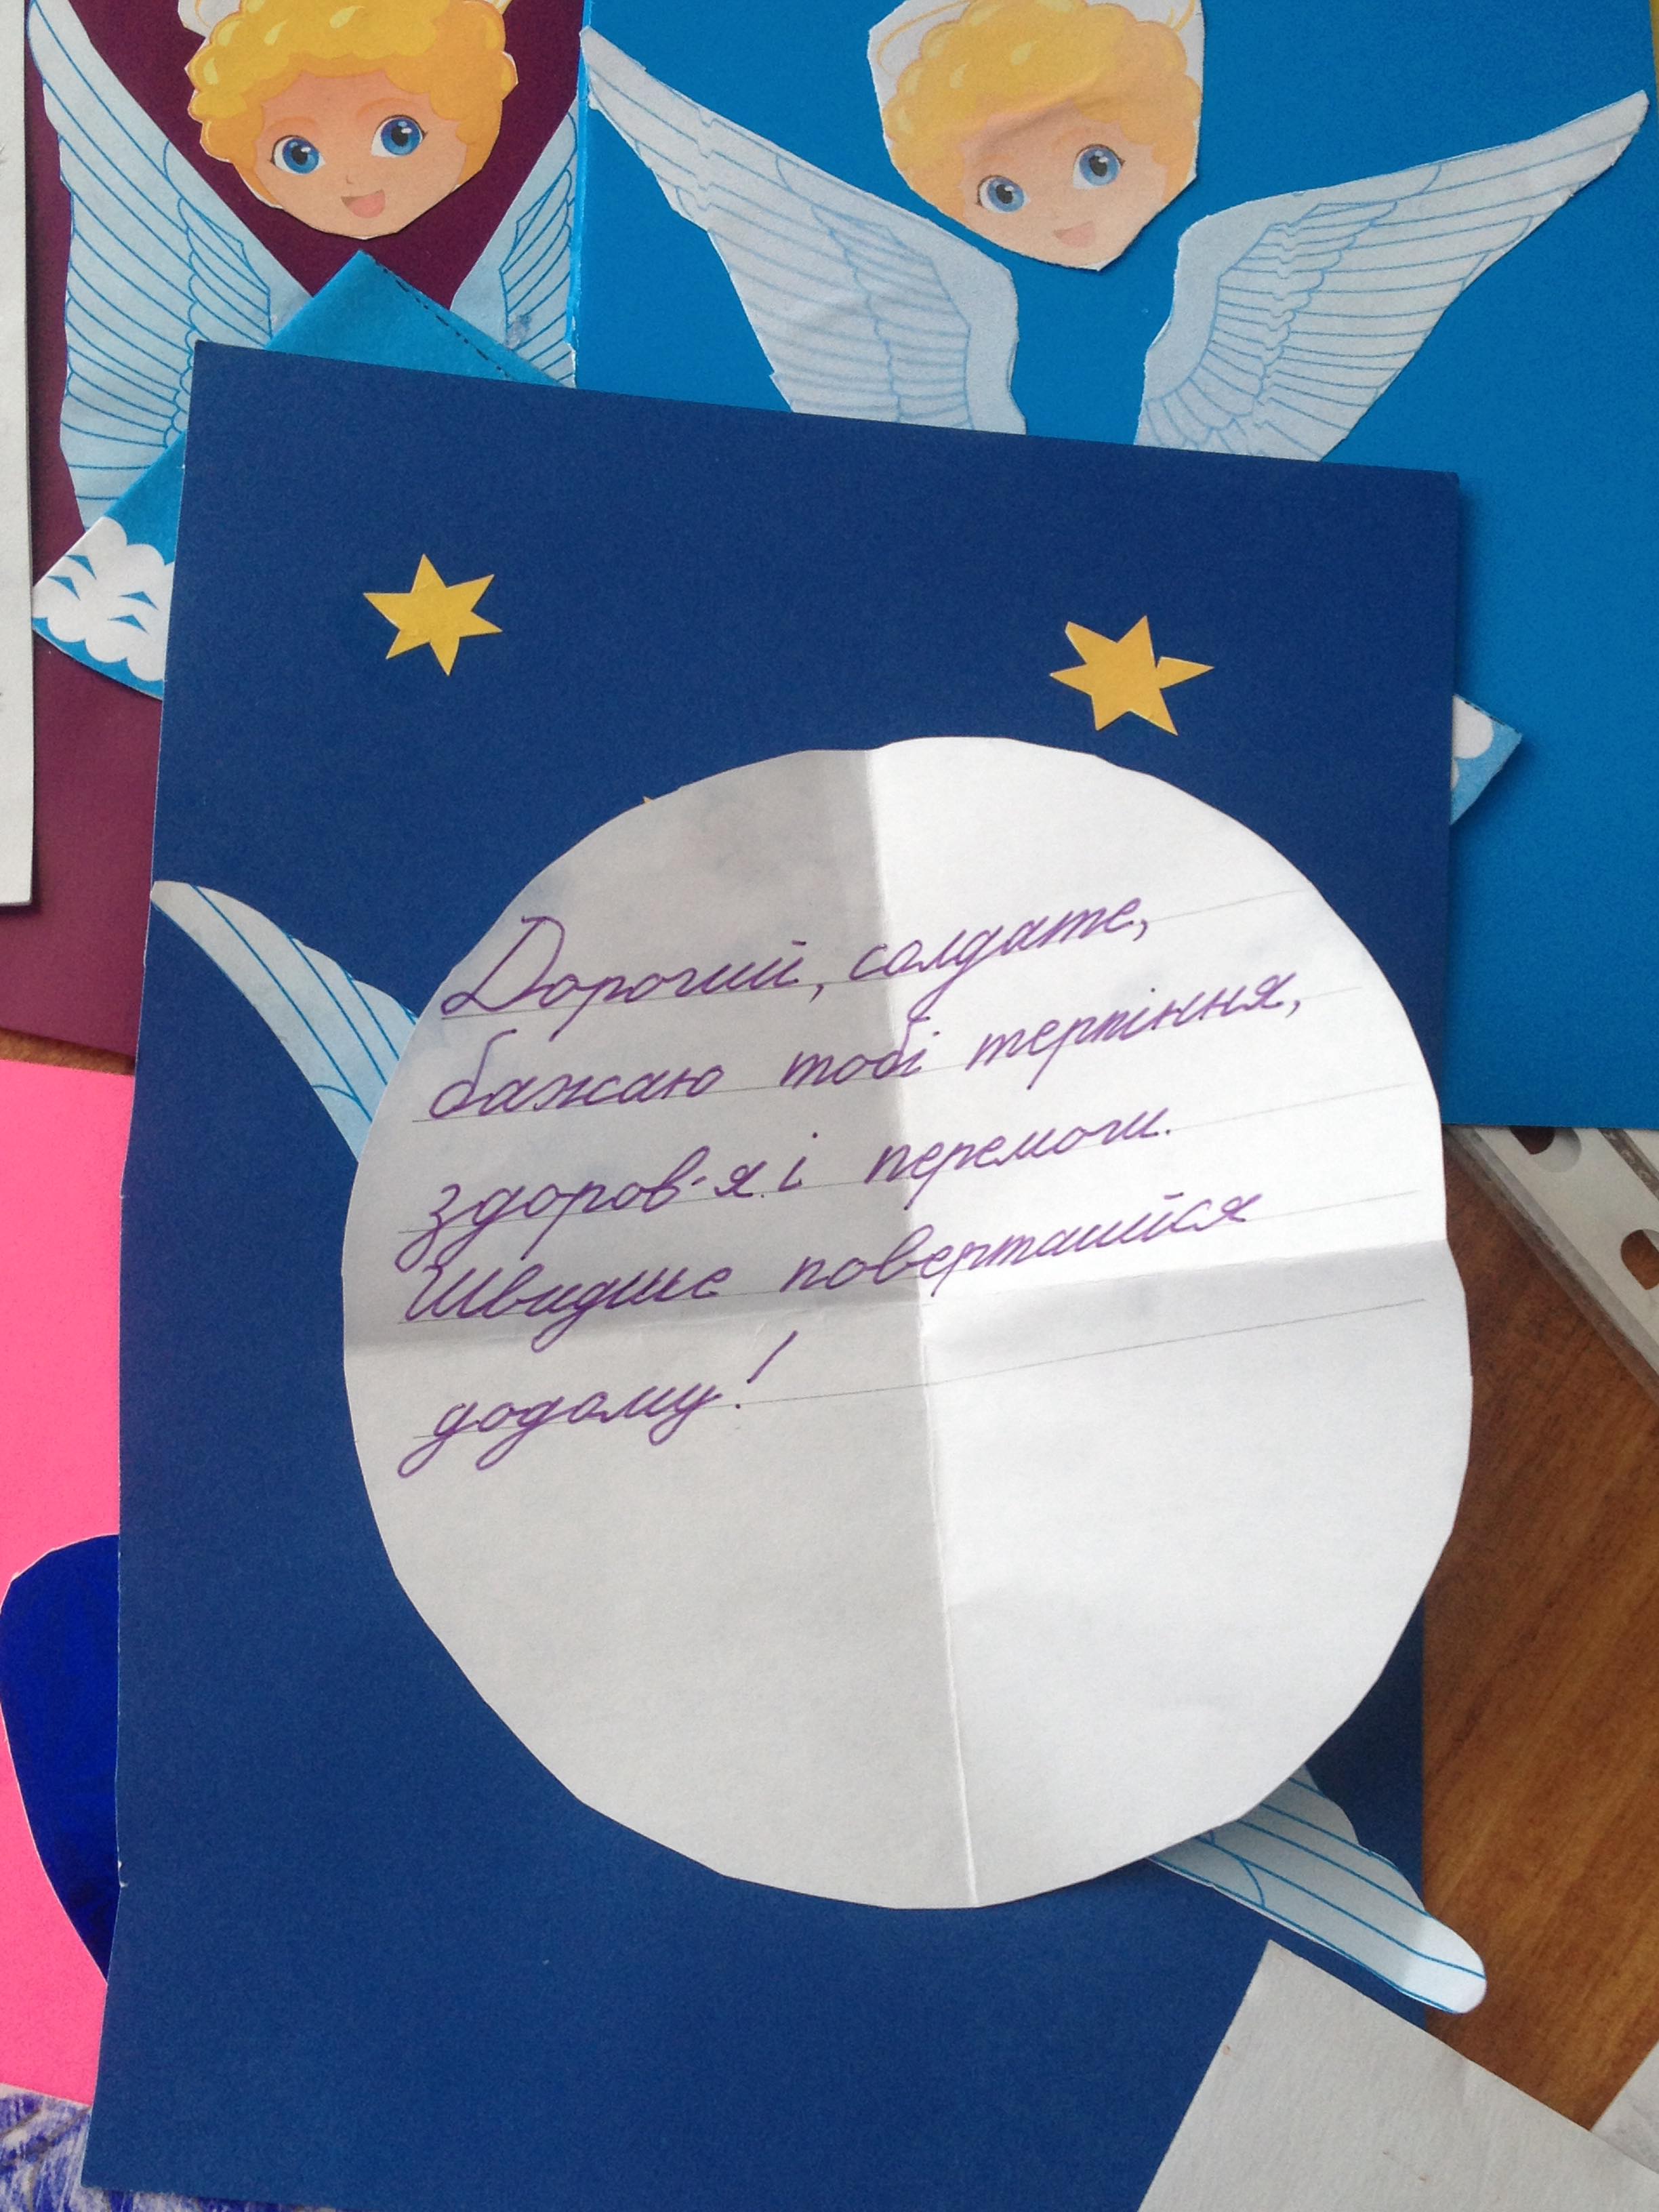 Дорогий, солдате,
бажаю тобі терпіння,
здоров-я і перемоги.
Швидше повертаййся
додому!